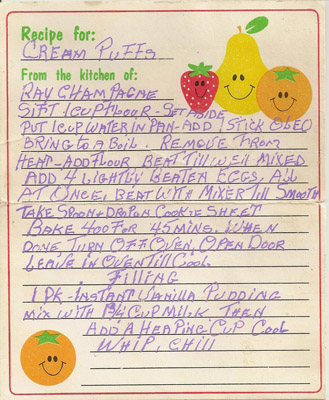 Recipe for:
CREAM PUFFS
From the kitchen of:
RAY CHAMPAGNE
SIFT 1 CUP FLOUR - SET ASIDE
PUT 1 CUP WATER IN PAN - ADD 1 STICK OLEO
BRING TO A BOIL. REMOVE FROM
HEAT - ADD FLOUR BEAT TILL WELL MIXED
ADD 4 LIGHTLY BEATEN EGGS, ALL
AT ONCE, BEAT WITH MIXER TILL SMOOTH
TAKE SPOON & DROP ON COOKIE SHEET
BAKE 400 FOR 45 MINS. WHEN
DONE TURN OFF OVEN, OPEN DOOR
LEAVE IN OVEN TILL COOL.
FILLING
1 PK - INSTANT VANILLA PUDDING
MIX WITH CUP MILK THEN
ADD A HEAPING CUP COOL
WHIP, CHILL